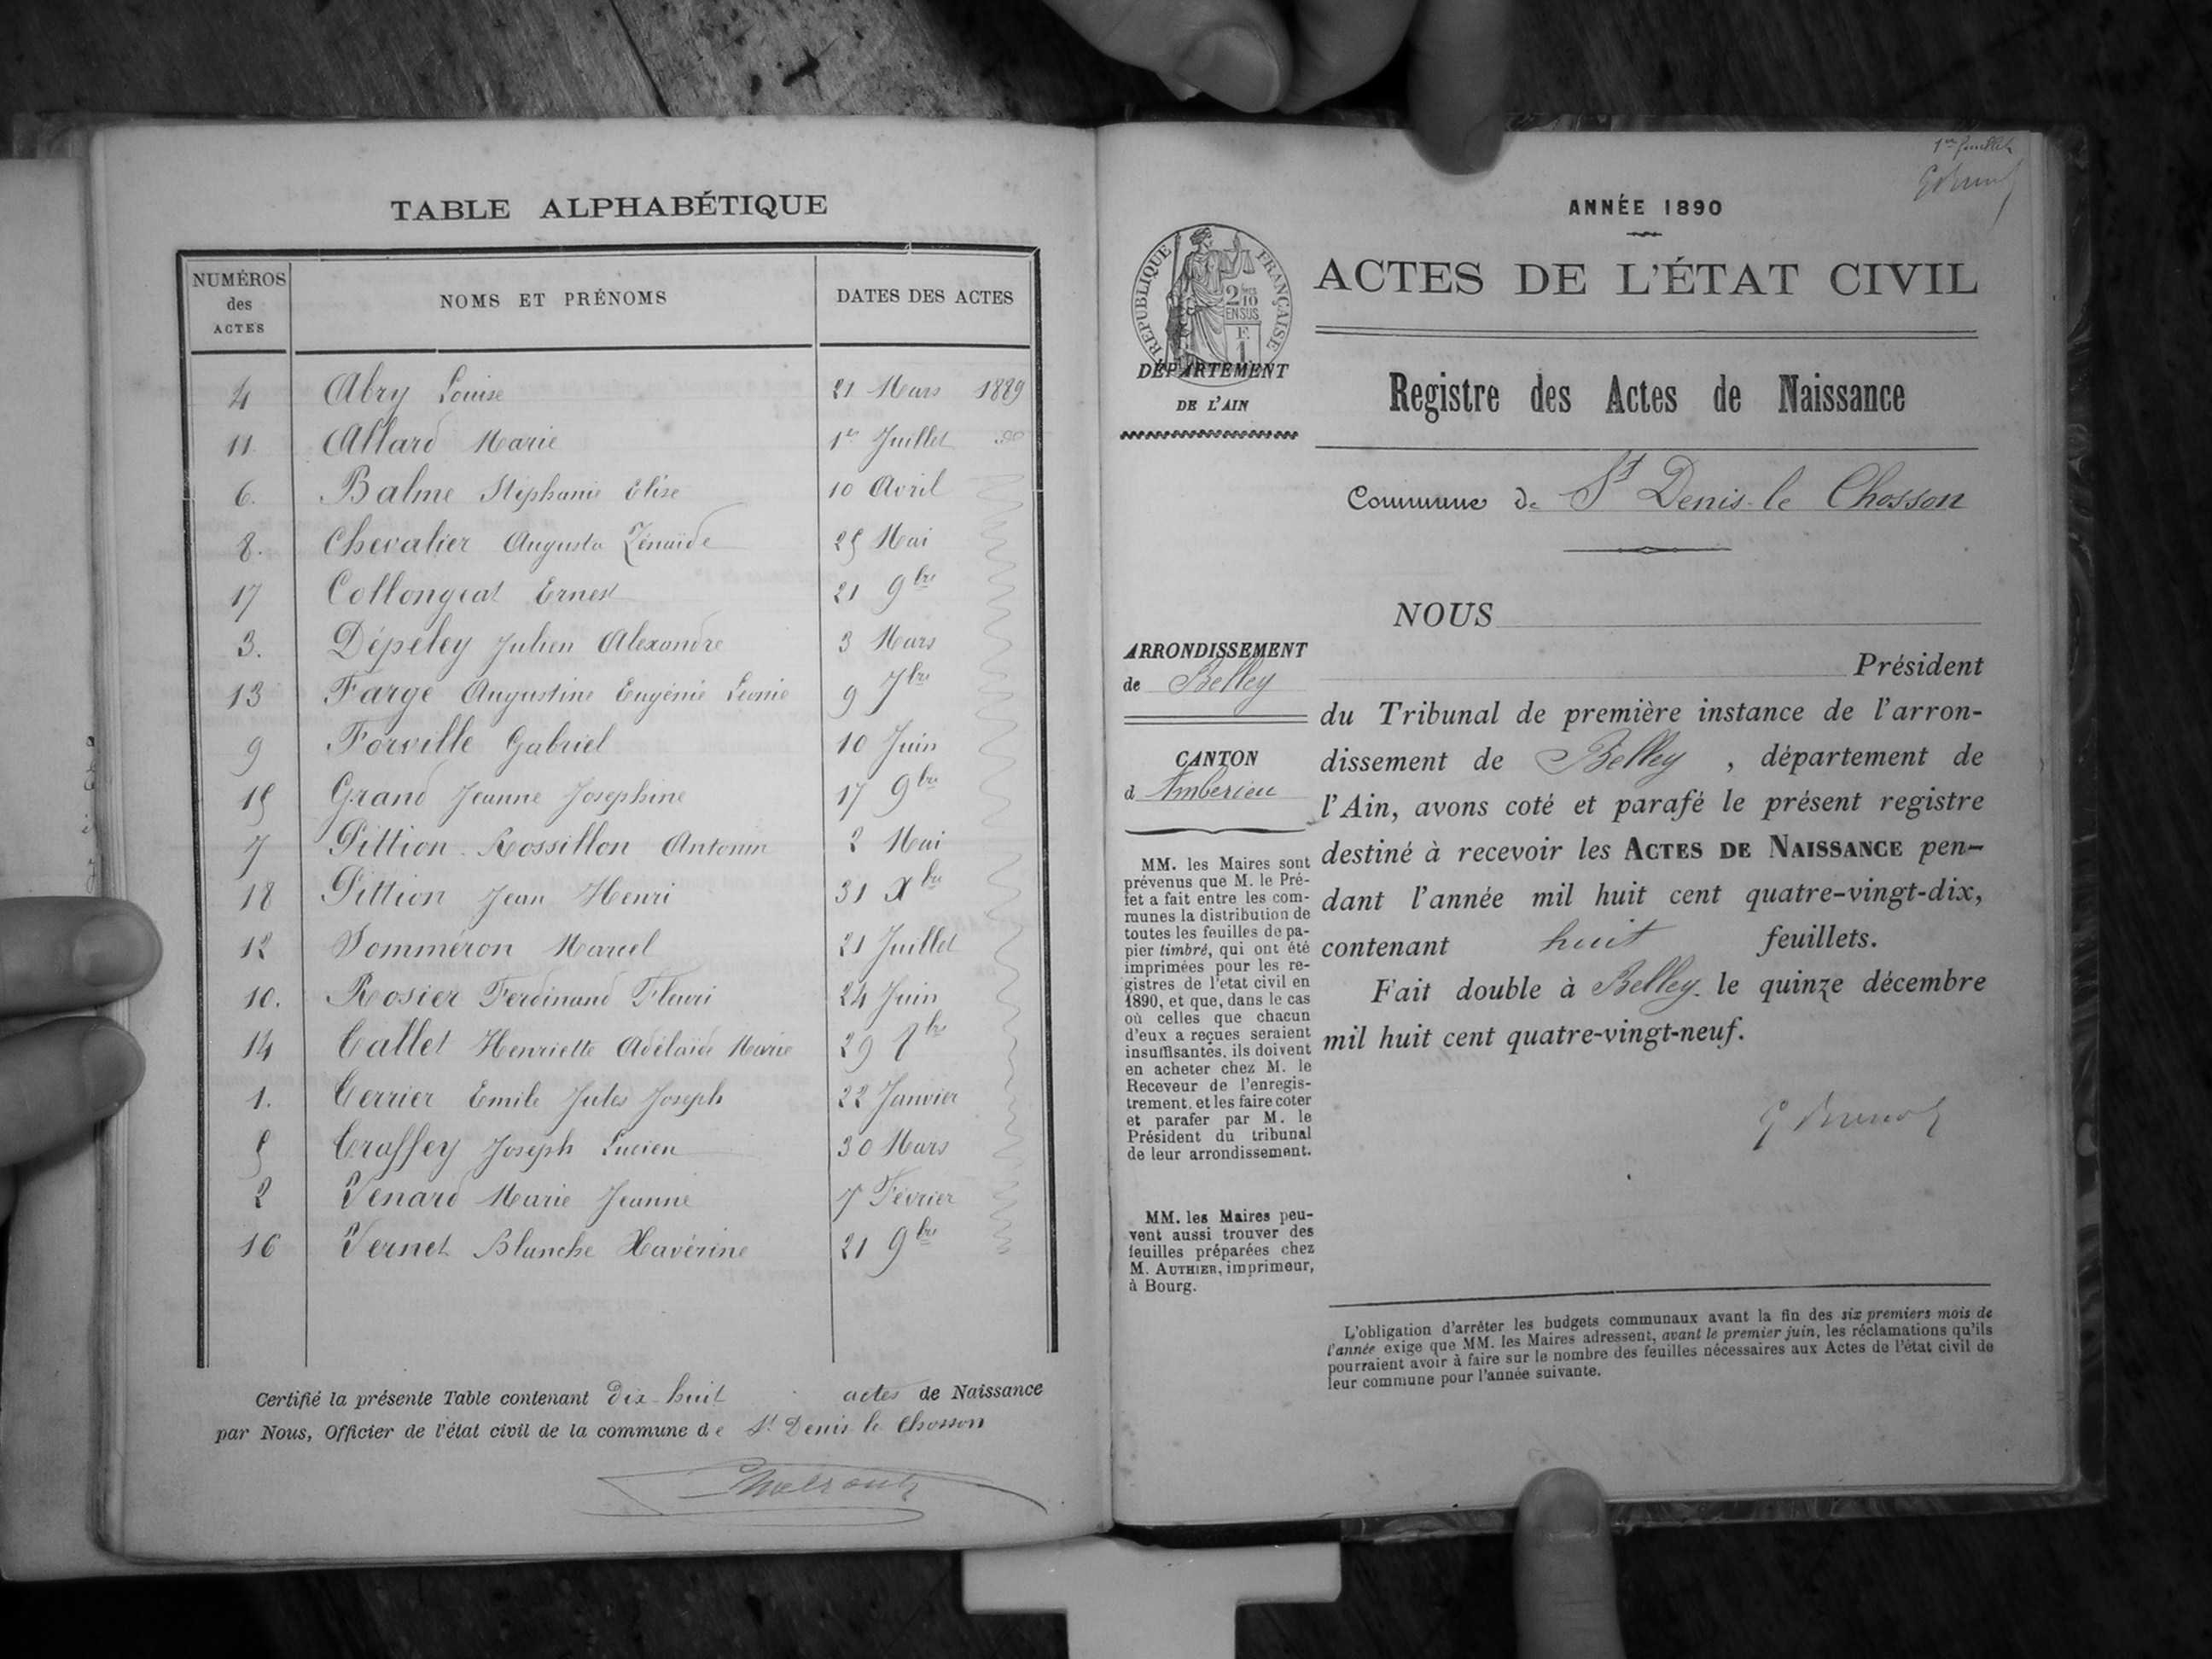 TABLE ALPHABÉTIQUE
NUMÉROS des ACTES NOMS ET PRÉNOMS DATES DES ACTES
4 Abry Louise 21 Mars 1889
11 Allard Marie 1er Juillet
6. Balme Stéphanie Elise 10 Avril
8. Chevalier Augusta Zénaïde 25 Mai
17 Collongeat Ernest 21 9bre
3. Dépeley Julien Alexandre 3 Mars
13 Farge Augustine Eugénie Leonie 9 7bre
9 Forville Gabriel 10 Juin
15 Grand Jeanne Josephine 17 9bre
7 Pittion-Rossillon Antonin 2 Mai
18 Pittion Jean Henri 31 Xbre
12 Sommeron Marcel 21 Juillet
10. Rosier Ferdinand Fleuri 24 Juin
14 Tallet Henriette Adélaïde Marie 29 7bre
1. Terrier Emile Jules Joseph 22 Janvier
5 Traffey Joseph Lucien 30 Mars
2 Venard Marie Jeanne 7 Février
16 Vernet Blanche Xavérine 21 9bre
Certifié la présente Table contenant dix-huit actes de Naissance
par Nous, Officier de l'état civil de la commune de St Denis le Chosson
1er feuillet
ANNÉE 1890
RÉPUBLIQUE FRANÇAISE
2 fcs 10
EN SUS
F.
1
ACTES DE L'ÉTAT CIVIL
DÉPARTEMENT
DE L'AIN
Registre des Actes de Naissance
Commune de St Denis-le Chosson
NOUS
ARRONDISSEMENT
de Belley
CANTON
d Amberieu
MM. les Maires sont
prévenus que M. le Pré-
fet a fait entre les com-
munes la distribution de
toutes les feuilles de pa-
pier timbré, qui ont été
imprimées pour les re-
gistres de l'état civil en
1890, et que, dans le cas
où celles que chacun
d'eux a reçues seraient
insuffisantes, ils doivent
en acheter chez M. le
Receveur de l'enregis-
trement, et les faire coter
et parafer par M. le
Président du tribunal
de leur arrondissement.
MM. les Maires peu-
vent aussi trouver des
feuilles préparées chez
M. AUTHIER, imprimeur,
à Bourg.
Président
du Tribunal de première instance de l'arron-
dissement de Belley , département de
l'Ain, avons coté et parafé le présent registre
destiné à recevoir les ACTES DE NAISSANCE pen-
dant l'année mil huit cent quatre-vingt-dix,
contenant huit feuillets.
Fait double à Belley. le quinze décembre
mil huit cent quatre-vingt-neuf.
L'obligation d'arrêter les budgets communaux avant la fin des six premiers mois de
l'année exige que MM. les Maires adressent, avant le premier juin, les réclamations qu'ils
pourraient avoir à faire sur le nombre des feuilles nécessaires aux Actes de l'état civil de
leur commune pour l'année suivante.